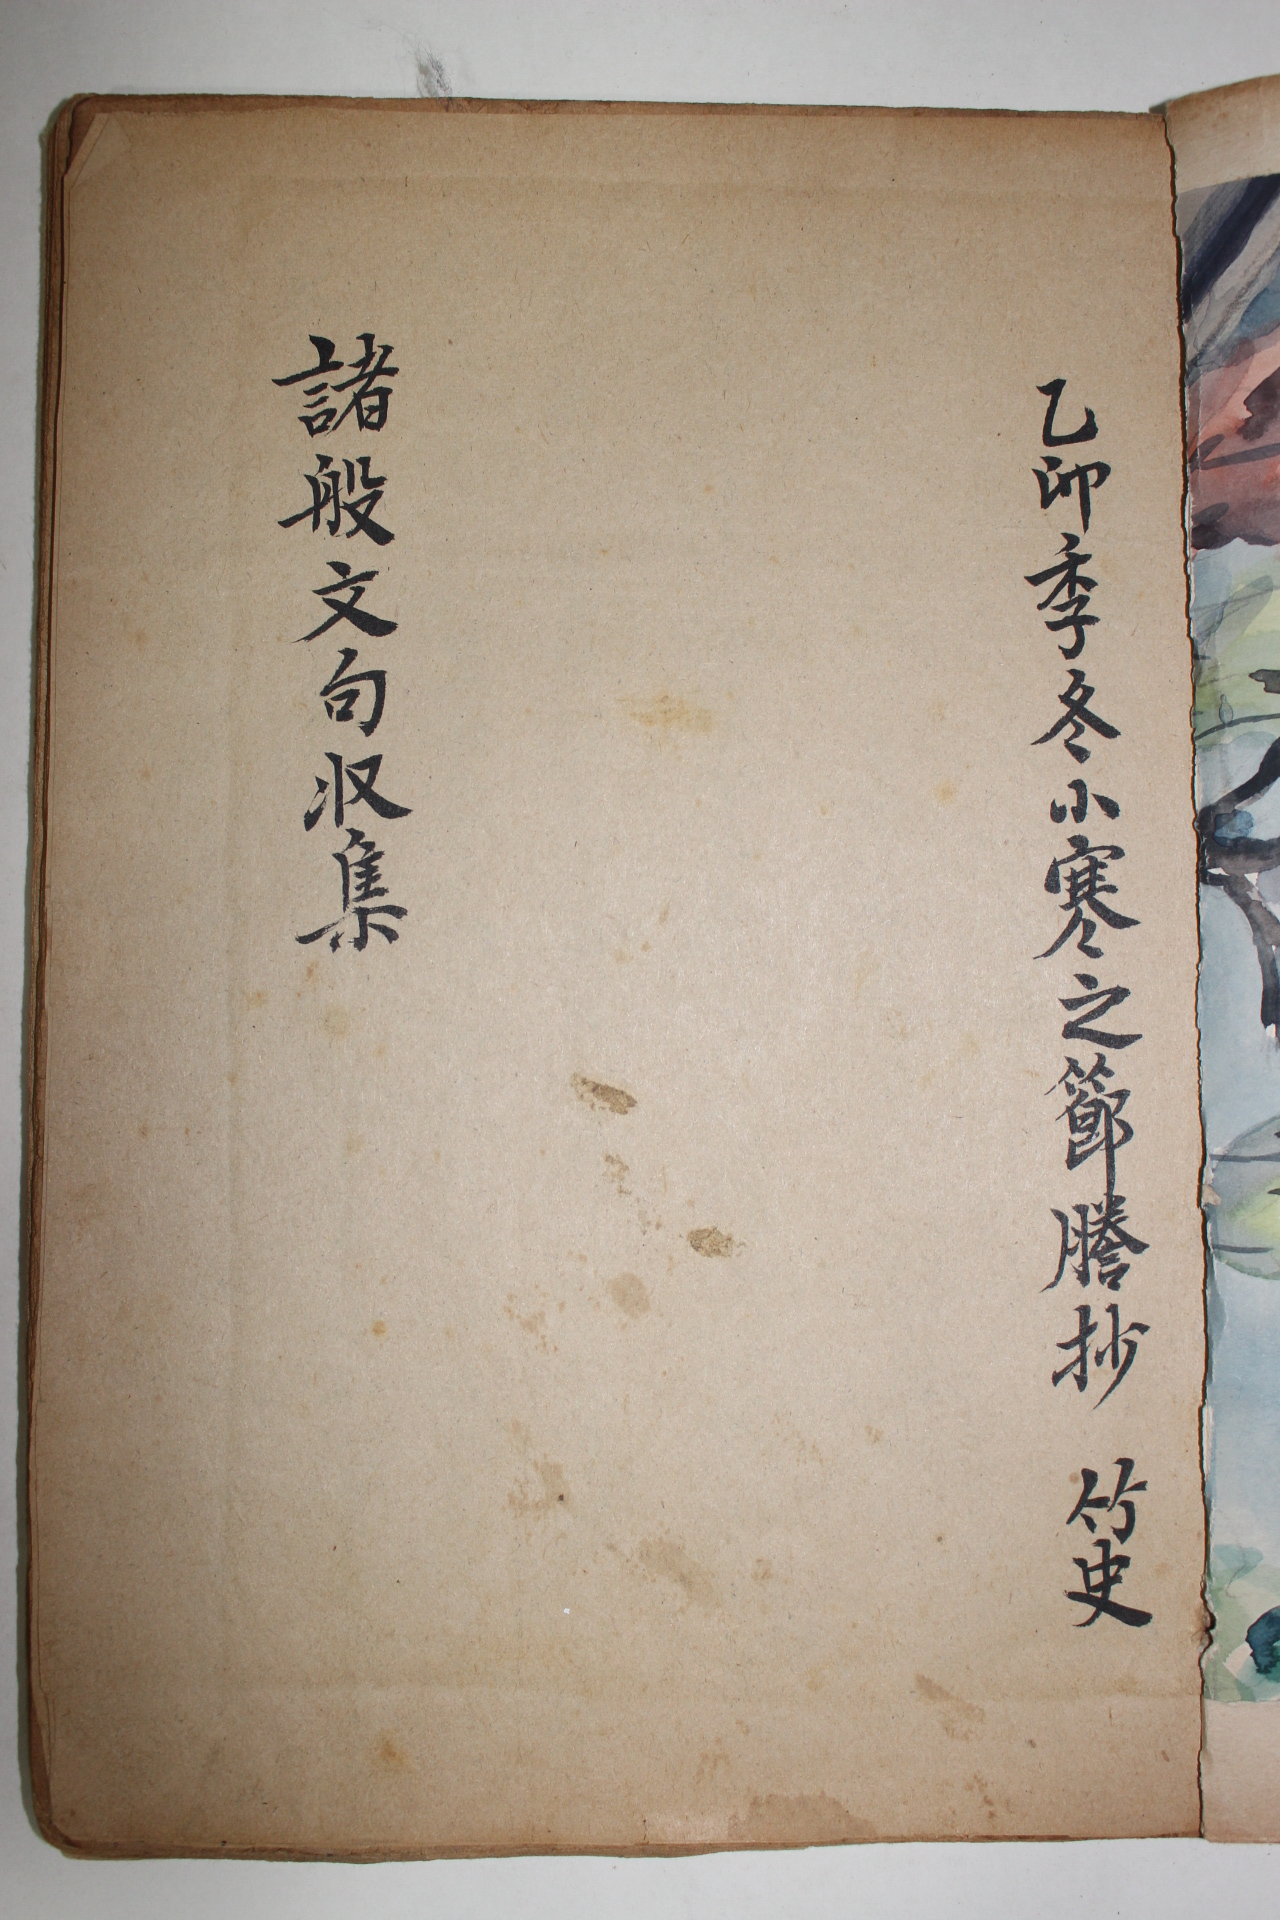 乙卯季冬小寒之節謄抄 竹史
諸般文句収集